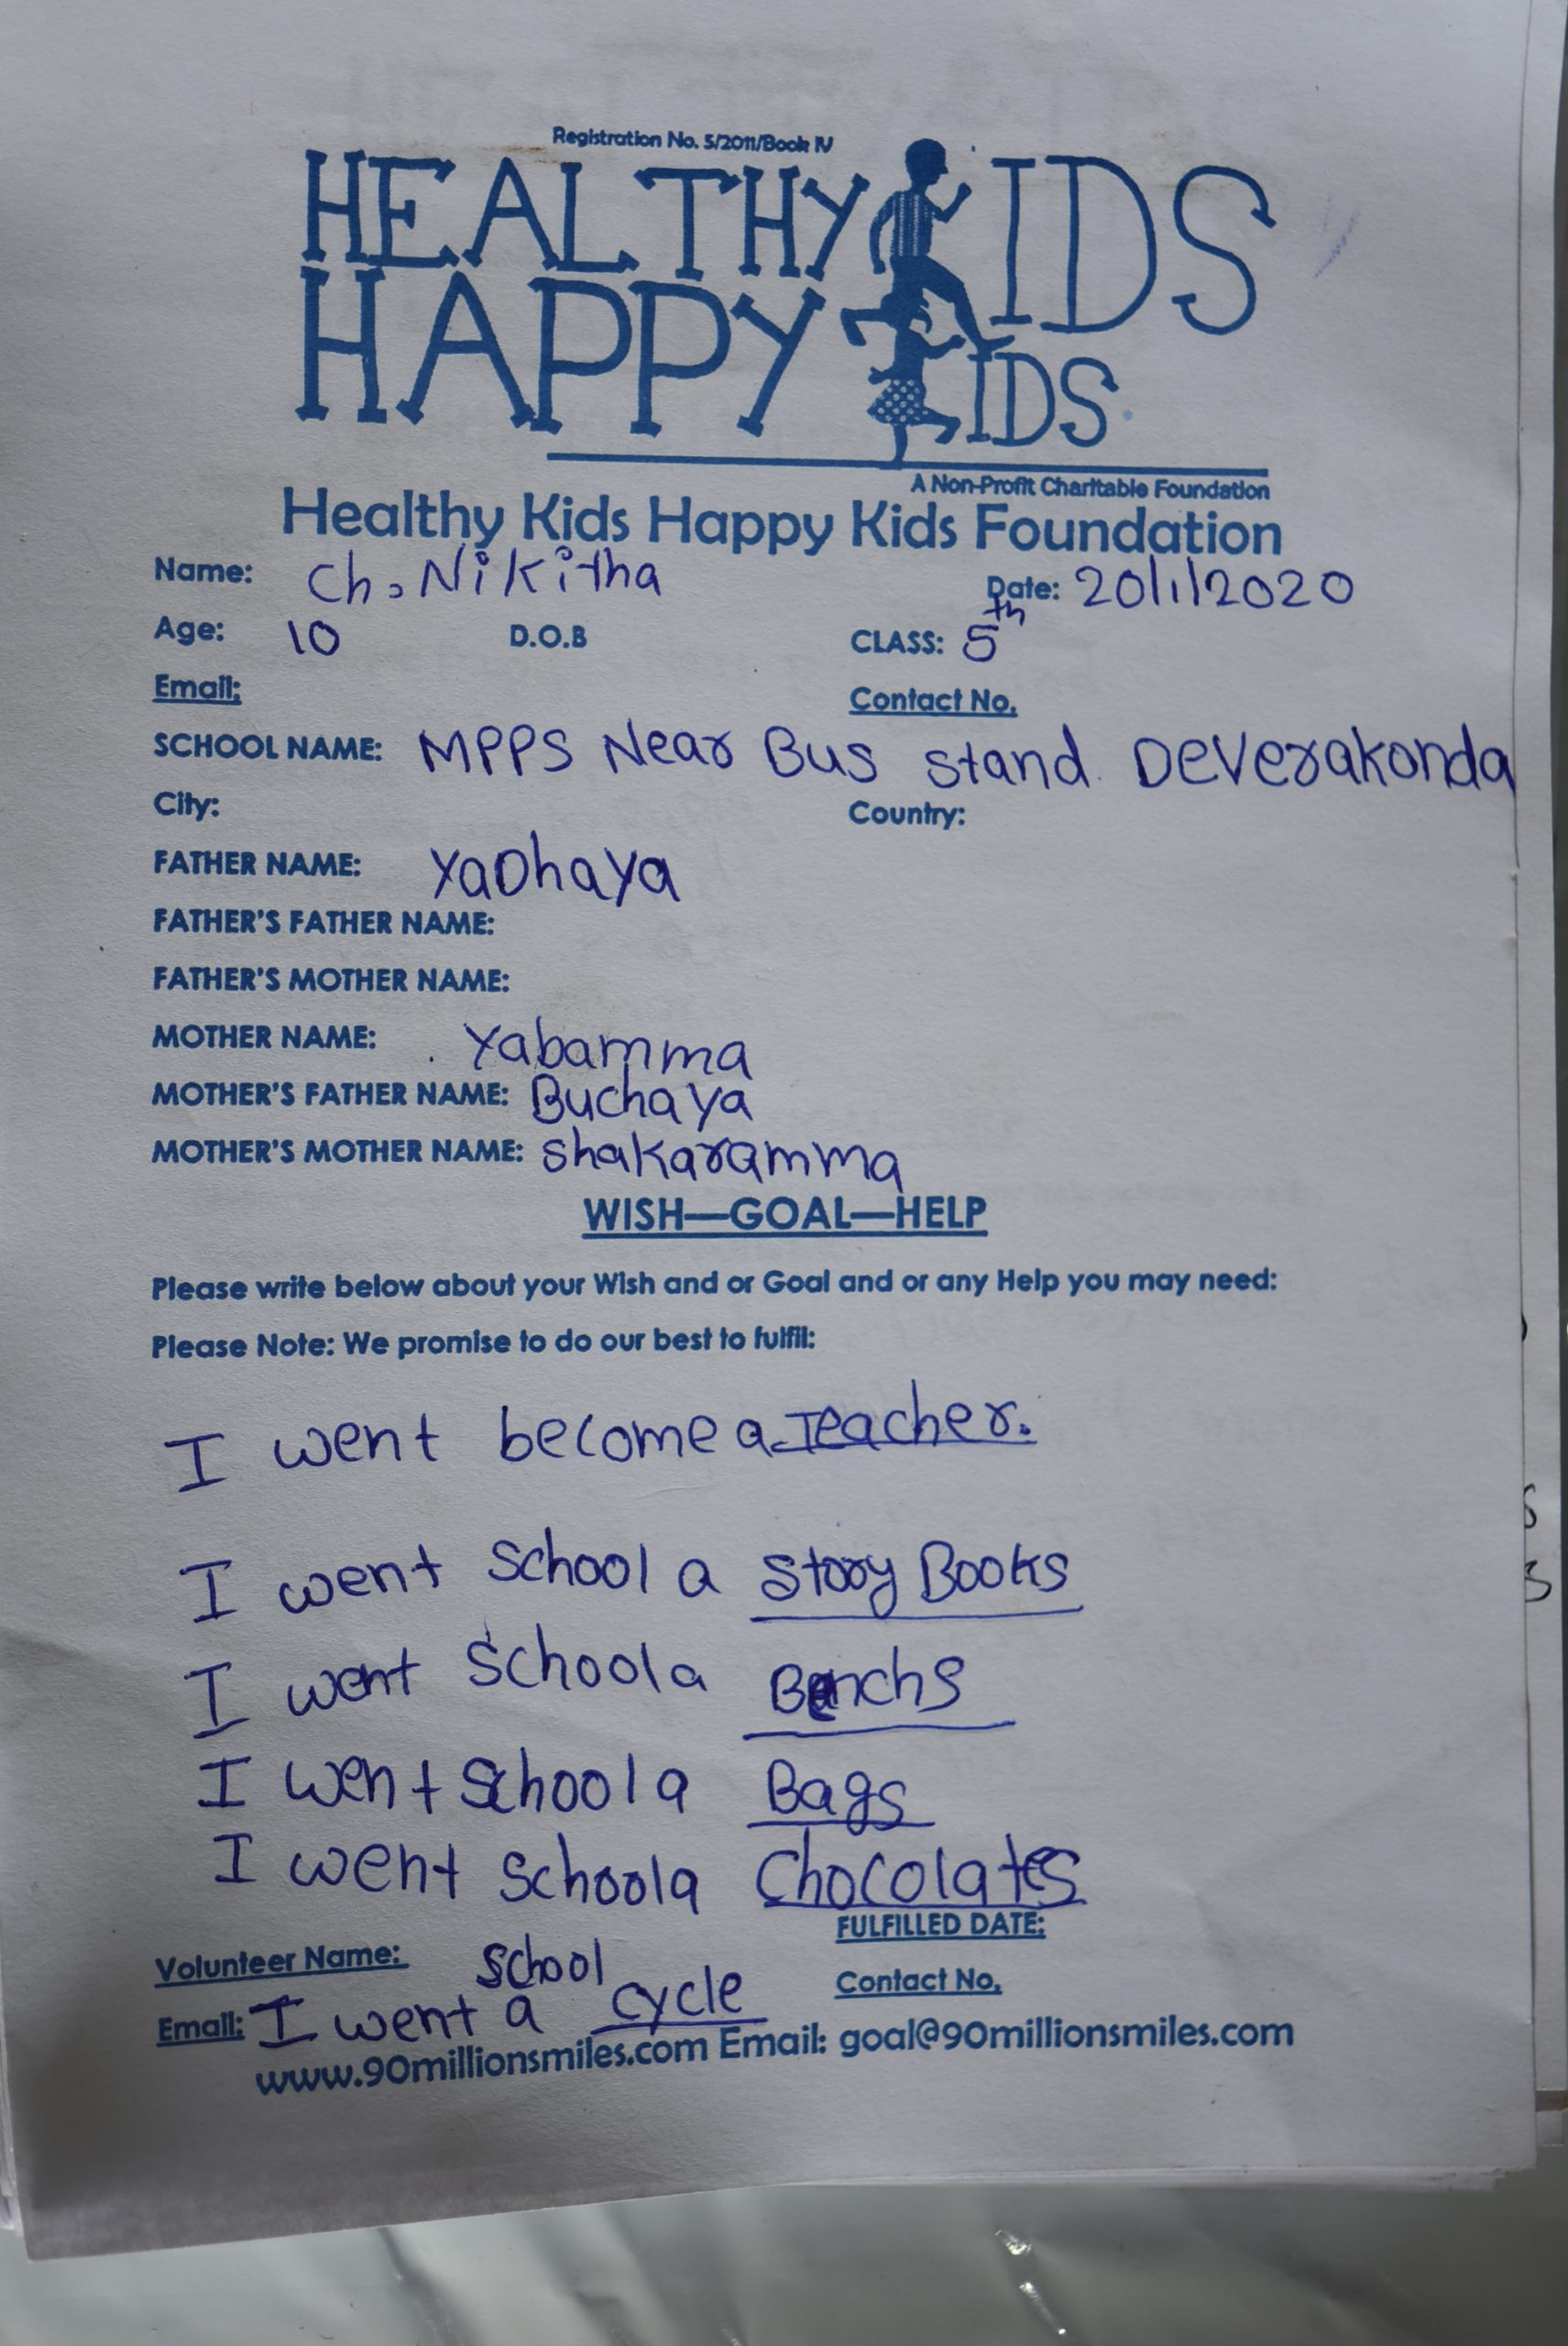 Registration No. 5/2011/Book IV
HEALTHY KIDS
HAPPY KIDS
A Non-Profit Charitable Foundation
Healthy Kids Happy Kids Foundation
Name: Ch. Nikitha Date: 20/1/2020
Age: 10 D.O.B CLASS: 5th
Email: Contact No.
SCHOOL NAME: MPPS Near Bus stand DeVerakonda
City: Country:
FATHER NAME: YaDhaya
FATHER'S FATHER NAME:
FATHER'S MOTHER NAME:
MOTHER NAME: Yabamma
MOTHER'S FATHER NAME: Buchaya
MOTHER'S MOTHER NAME: shakaramma
WISH—GOAL—HELP
Please write below about your Wish and or Goal and or any Help you may need:
Please Note: We promise to do our best to fulfil:
I went become a Teacher.
I went school a Story Books
I went school a Benchs
I went school a Bags
I went school a Chocolates
FULFILLED DATE:
Volunteer Name: school
Contact No.
Email: I went a cycle
www.90millionsmiles.com Email: goal@90millionsmiles.com